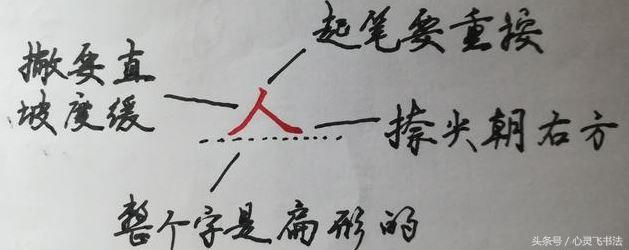 起笔要重按
撇要直
坡度缓
人
捺尖朝右方
整个字是扁形的
头条号 / 心灵飞书法